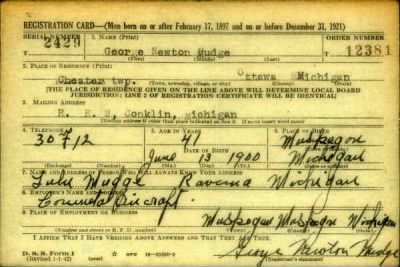 REGISTRATION CARD—(Men born on or after February 17, 1897 and on or before December 31, 1921)
SERIAL NUMBER 1. NAME (Print) ORDER NUMBER
2429 George Newton Mudge 12381
(First) (Middle) (Last)
2. PLACE OF RESIDENCE (Print)
Chester twp. Ottawa Michigan
(Number and street) (Town, township, village, or city) (County) (State)
[THE PLACE OF RESIDENCE GIVEN ON THE LINE ABOVE WILL DETERMINE LOCAL BOARD
JURISDICTION; LINE 2 OF REGISTRATION CERTIFICATE WILL BE IDENTICAL]
3. MAILING ADDRESS
R. R. 2, Conklin, Michigan
[Mailing address if other than place indicated on line 2. If same insert word same]
4. TELEPHONE 5. AGE IN YEARS 6. PLACE OF BIRTH
30F12 41 Muskegon
DATE OF BIRTH
June 13 1900 Michigan
(Exchange) (Number) (Mo.) (Day) (Yr.) (State or country)
7. NAME AND ADDRESS OF PERSON WHO WILL ALWAYS KNOW YOUR ADDRESS
Mudge Ravenna Michigan
8. EMPLOYER'S NAME AND ADDRESS
Aircraft
9. PLACE OF EMPLOYMENT OR BUSINESS
Muskegon Muskegon Michigan
(Number and street or R. F. D. number) (Town) (County) (State)
I AFFIRM THAT I HAVE VERIFIED ABOVE ANSWERS AND THAT THEY ARE TRUE.
D. S. S. Form 1
(Revised 1-1-42) George Newton Mudge